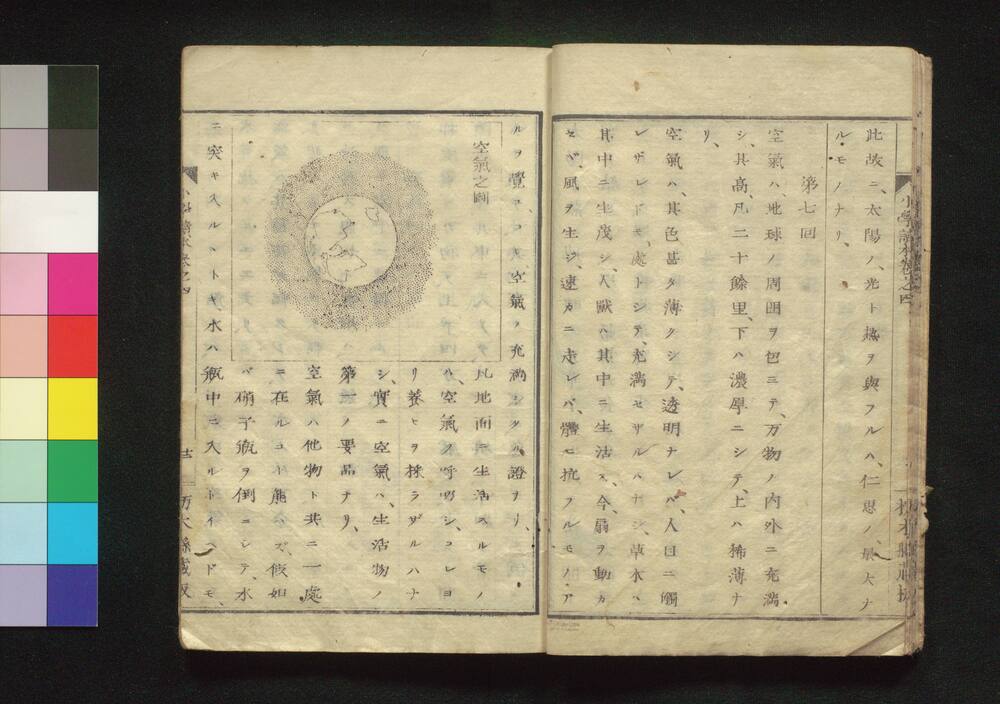 此故ニ、太陽ノ、光ト熱ヲ與フルハ、仁恵ノ、最大ナ
ル、モノナリ、
第七回
空氣ハ、地球ノ周囲ヲ包ミテ、万物ノ内外ニ充満
シ、其高、凡二十餘里、下ハ濃厚ニシテ、上ハ稀薄ナ
リ、
空氣ハ、其色甚タ薄クシテ、透明ナレバ、人目ニ觸
レザレドモ、處トシテ、充満セザルハナシ、草木ハ
其中ニ生茂シ、人獣ハ其中ニ生活ス、今、扇ヲ動カ
セバ、風ヲ生ジ、速カニ走レバ、體ニ抗フルモノア
小學讀本巻之四
ルヲ覺ユ、コハ空氣ノ充満シタル證ナリ、
空氣之圖
此地面ニ生活スルモノ
ハ、空氣ヲ呼吸シ、コレヨ
リ養ヒヲ採ラザルハナ
シ、實ニ空氣ハ、生活物ノ
第一ノ要品ナリ、
空氣ハ他物ト共ニ一處
ニ在ルコト能ハズ、假如
バ硝子瓶ヲ倒ニシテ、水
ニ突キ入ルヽトキ、水ハ瓶中ニ入ルトイヘドモ、